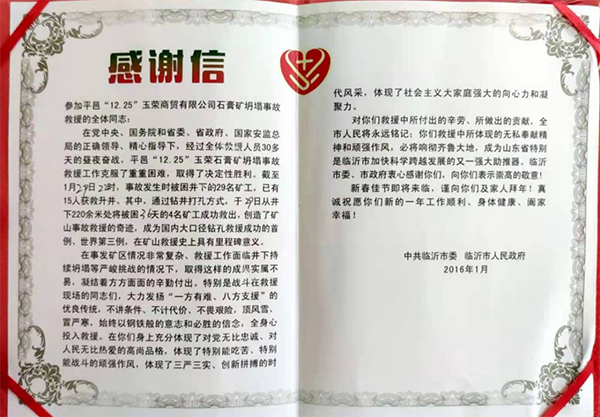 感谢信
参加平邑“12.25”玉荣商贸有限公司石膏矿坍塌事故
救援的全体同志:
在党中央、国务院和省委、省政府、国家安监总
局的正确领导、精心指导下,经过全体救援人员30多
天的昼夜奋战,平邑“12.25”玉荣石膏矿坍塌事故
救援工作克服了重重困难,取得了决定性胜利!截至
1月29日22时,事故发生时被困井下的29名矿工,已有
15人获救升井。其中,通过钻井打孔方式,于29日从井
下220余米处将被困36天的4名矿工成功救出,创造了矿
山事故救援的奇迹,成为国内大口径钻孔救援成功的首
例、世界第三例,在矿山救援史上具有里程碑意义。
在事发矿区情况非常复杂、救援工作面临井下持
续坍塌等严峻挑战的情况下,取得这样的成果实属不
易,凝结着方方面面的辛勤付出。特别是战斗在救援
现场的同志们,大力发扬“一方有难、八方支援”的
优良传统,不讲条件、不计代价、不畏艰险,顶风雪,
冒严寒,始终以钢铁般的意志和必胜的信念,全身心
投入救援。在你们身上充分体现了对党无比忠诚、对
人民无比热爱的高尚品格,体现了特别能吃苦、特别
能战斗的顽强作风,体现了三严三实、创新拼搏的时
代风采,体现了社会主义大家庭强大的向心力和凝
聚力。
对你们救援中所付出的辛劳、所做出的贡献,全
市人民将永远铭记;你们救援中所体现的无私奉献精
神和顽强作风,必将响彻齐鲁大地,成为山东省特别
是临沂市加快科学跨越发展的又一强大助推器。临沂市
委、市政府衷心感谢你们,向你们表示崇高的敬意!
新春佳节即将来临,谨向你们及家人拜年!真
诚祝愿你们新的一年工作顺利、身体健康、阖家
幸福!
中共临沂市委 临沂市人民政府
2016年1月